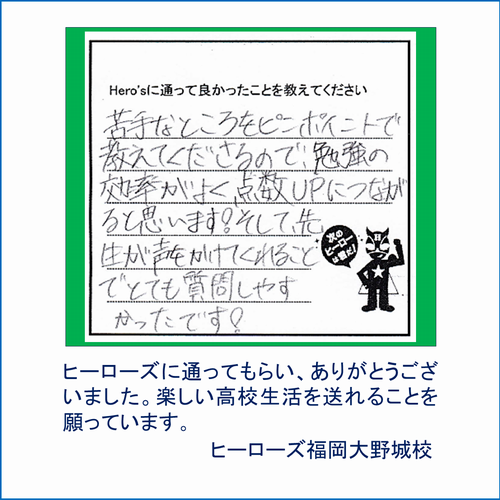 Hero'sに通って良かったことを教えてください
苦手なところをピンポイントで
教えてくださるので、勉強の
効率がよく点数UPにつなが
ると思います！そして、先
生が声をかけてくれること
でとても質問しやす
かったです！
次の
ヒーロー
は君だ！
ヒーローズに通ってもらい、ありがとうござ
いました。楽しい高校生活を送れることを
願っています。
ヒーローズ福岡大野城校